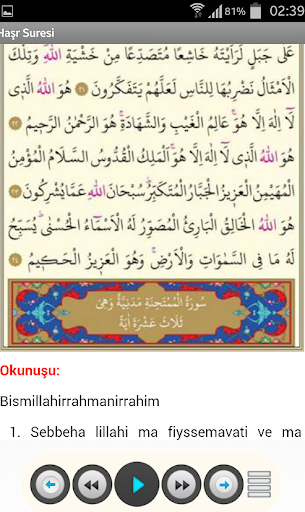 81% 02:39
Haşr Suresi
عَلٰى جَبَلٍ لَرَاَيْتَهُ خَاشِعًا مُتَصَدِّعًا مِنْ خَشْيَةِ اللّٰهِ وَتِلْكَ
الْاَمْثَالُ نَضْرِبُهَا لِلنَّاسِ لَعَلَّهُمْ يَتَفَكَّرُونَ ﴿٢١﴾ هُوَ اللّٰهُ الَّذٖى
لَٓا اِلٰهَ اِلَّا هُوَۚ عَالِمُ الْغَيْبِ وَالشَّهَادَةِۚ هُوَ الرَّحْمٰنُ الرَّحٖيمُ ﴿٢٢﴾
هُوَ اللّٰهُ الَّذٖى لَٓا اِلٰهَ اِلَّا هُوَۚ اَلْمَلِكُ الْقُدُّوسُ السَّلَامُ الْمُؤْمِنُ
الْمُهَيْمِنُ الْعَزٖيزُ الْجَبَّارُ الْمُتَكَبِّرُؕ سُبْحَانَ اللّٰهِ عَمَّا يُشْرِكُونَ ﴿٢٣﴾
هُوَ اللّٰهُ الْخَالِقُ الْبَارِئُ الْمُصَوِّرُ لَهُ الْاَسْمَٓاءُ الْحُسْنٰىؕ يُسَبِّحُ
لَهُ مَا فِى السَّمٰوَاتِ وَالْاَرْضِۚ وَهُوَ الْعَزٖيزُ الْحَكٖيمُ ﴿٢٤﴾
سُورَةُ الْمُمْتَحِنَةِ مَدَنِيَّةٌ وَهِىَ
ثَلَاثَ عَشْرَةَ اٰيَةً
Okunuşu:
Bismillahirrahmanirrahim
1. Sebbeha lillahi ma fiyssemavati ve ma